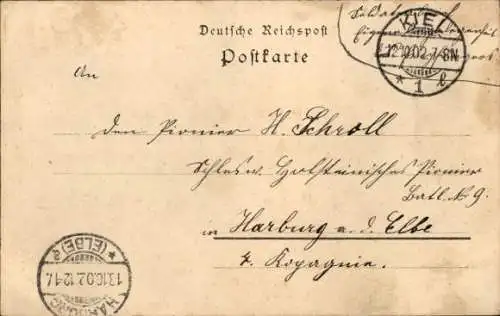 Deutsche Reichspost
Postkarte
KIEL
12.10.02.7-8N
* 1 l
An
den Pionier H. Schroll
Schlesw. Holsteinisches Pionier
Batl. No 9.
in Harburg a. d. Elbe
4. Kopagnie.
HARBURG
13.10.02.12-1
* (ELBE) 2